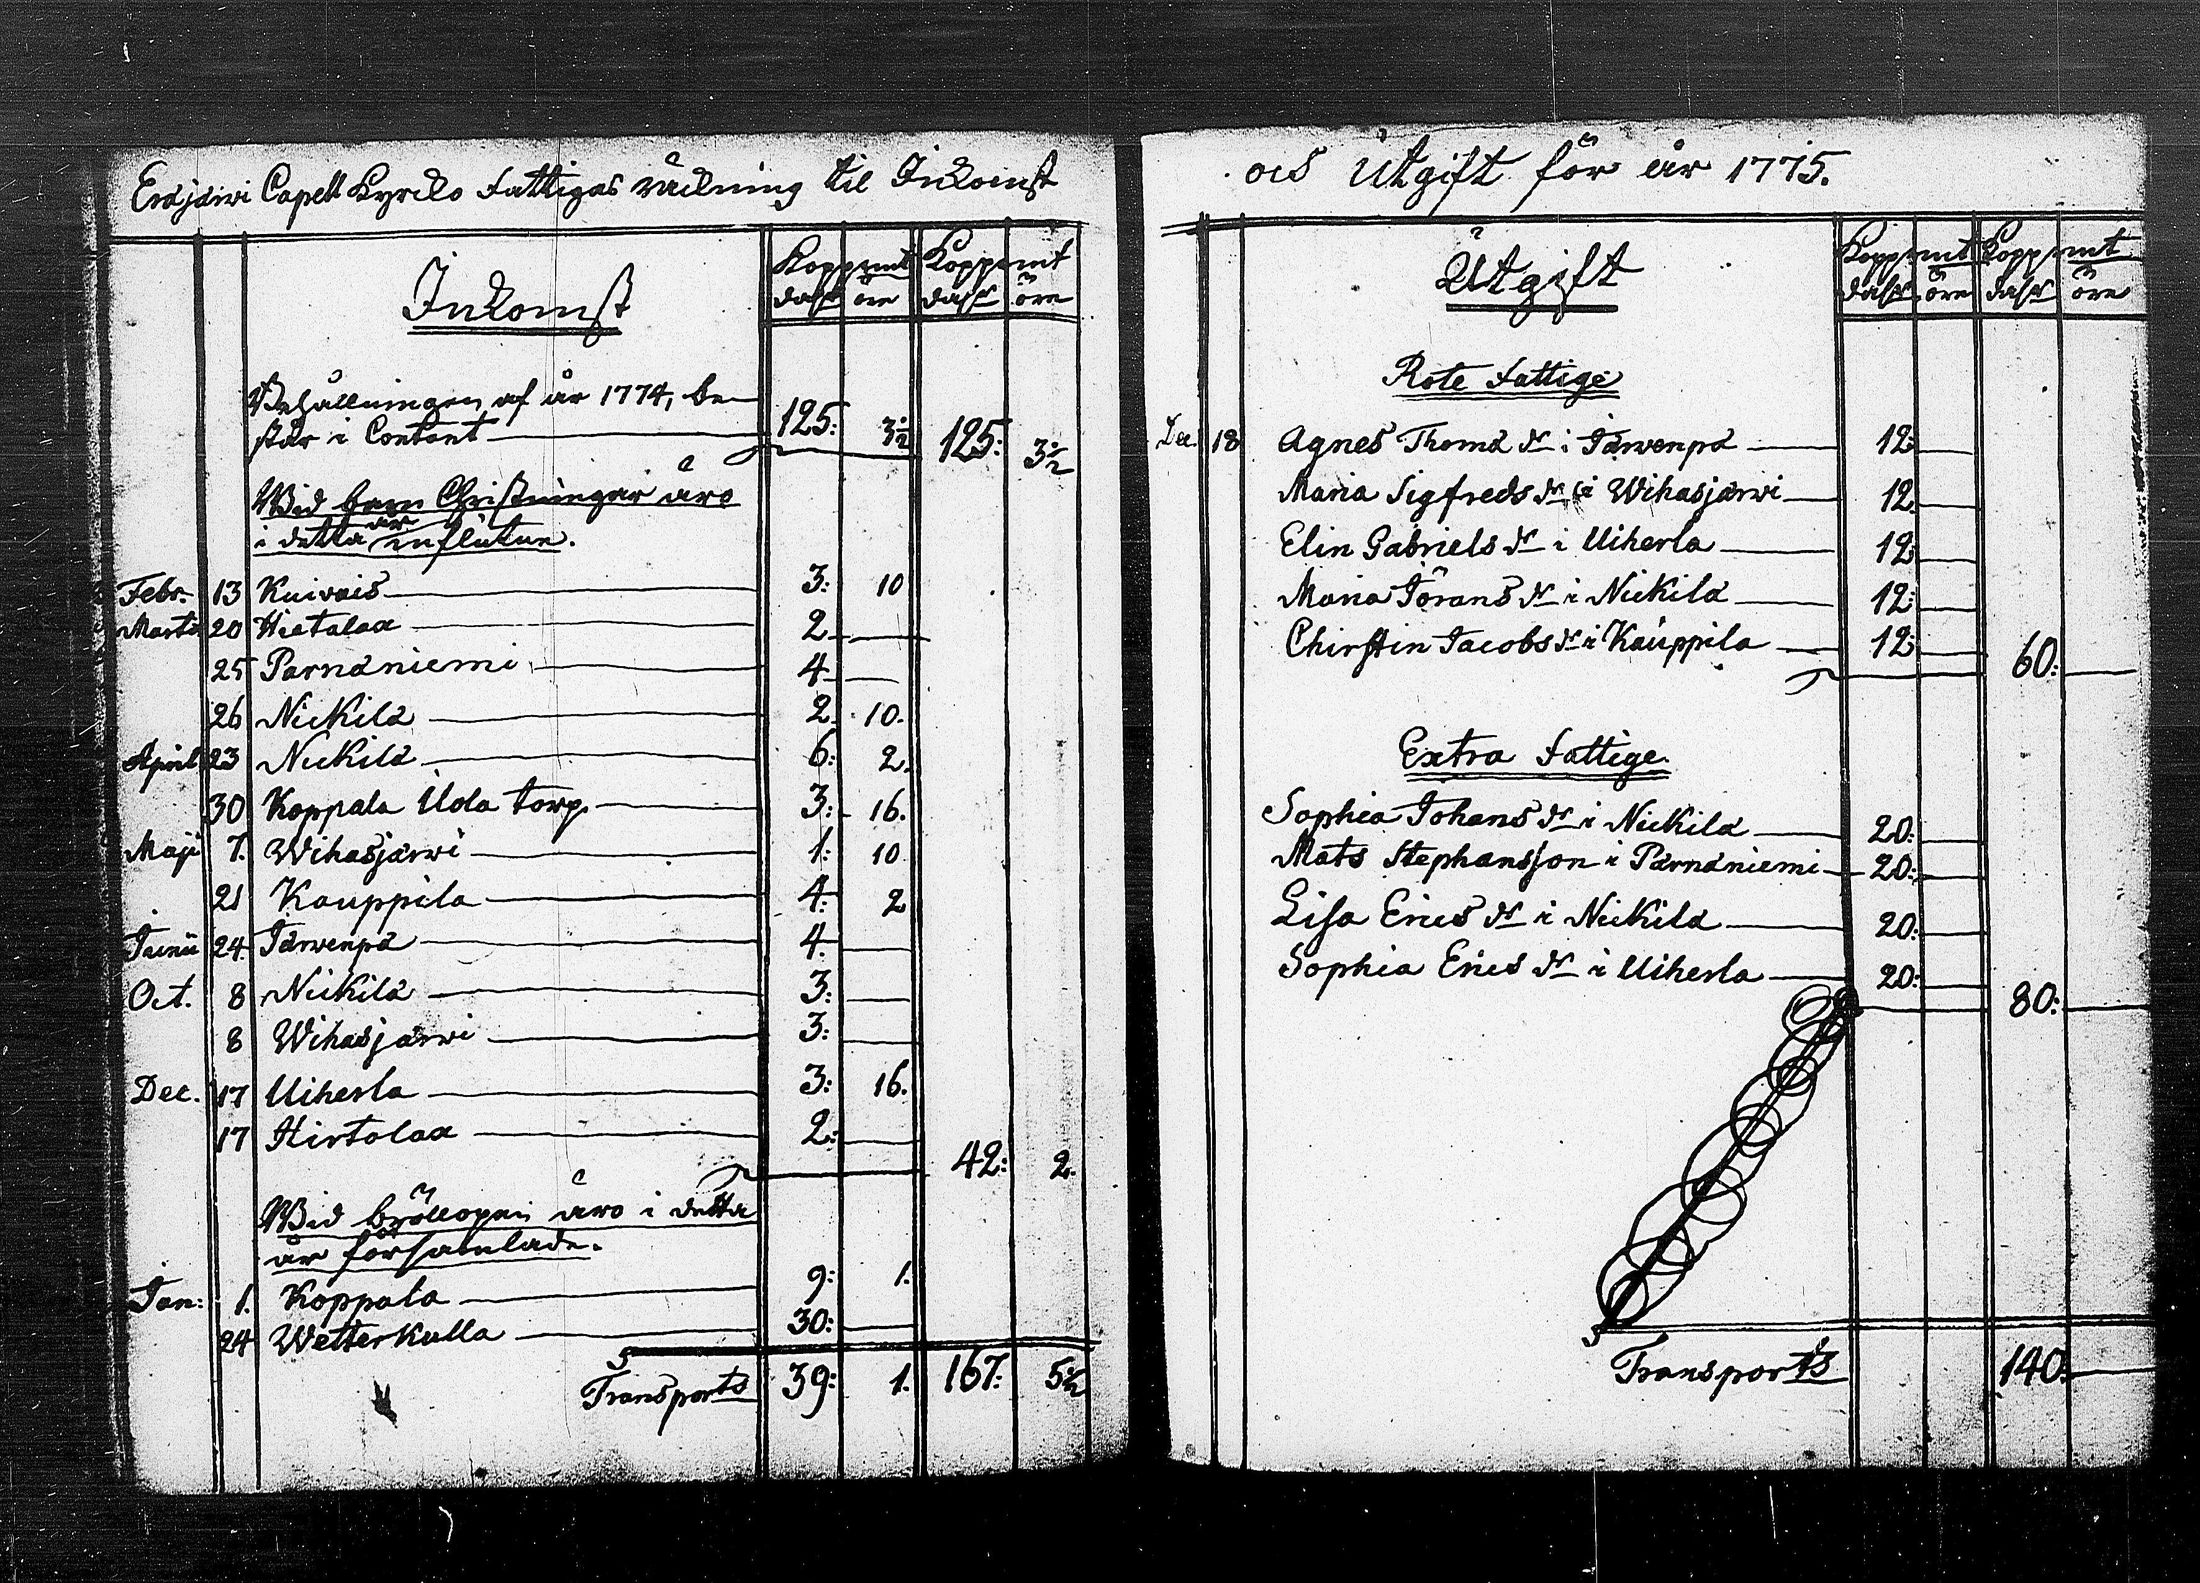 Eräjärwi Capell Kyrcko Fattigas räckning til Inkomst
Inkomst
Koppmt Koppmt
dalr öre dalr öre
Behållningen af år 1774, be-
står i Contant 125: 3½ 125: 3½
Wid barn Christningar äro
i detta år influtne.
Febr. 13 Kuivais 3: 10
Martii 20 Hietalax 2
25 Parnäniemi 4
26 Nickilä 2 10.
April 23 Nickilä 6: 2.
30 Koppala Uola torp. 3: 16.
Maji 7. Wihasjärwi 1: 10
21 Kauppila 4: 2
Junii 24. Järwenpä 4.
Oct. 8 Nickilä 3:
8 Wihasjärwi 3:
Dec. 17 Uiherla 3: 16.
17 Hirtolax 2:
42: 2.
Wid bröllopen äro i detta
år församlade.
Jan: 1. Koppala 9: 1.
24 Wetterkulla 30:
Transports 39: 1. 167: 5½
och Utgift för år 1775.
Utgift
Koppmt Koppmt
dalr öre dalr öre
Rote Fattige
Dec. 18 Agnes Thomä dr i Järwenpä 12:
Maria Sigfreds dr i Wihasjärwi 12
Elin Gabriels dr i Uiherla 12
Maria Jörans dr i Nickilä 12:
Chirstin Jacobs dr i Kauppila 12:
60:
Extra Fattige.
Sophia Johans dr i Nickilä 20:
Mats Stephansson i Pärnäniemi 20:
Lisa Erics dr i Nickilä 20:
Sophia Erics dr i Uiherla 20:
80:
Transports 140: